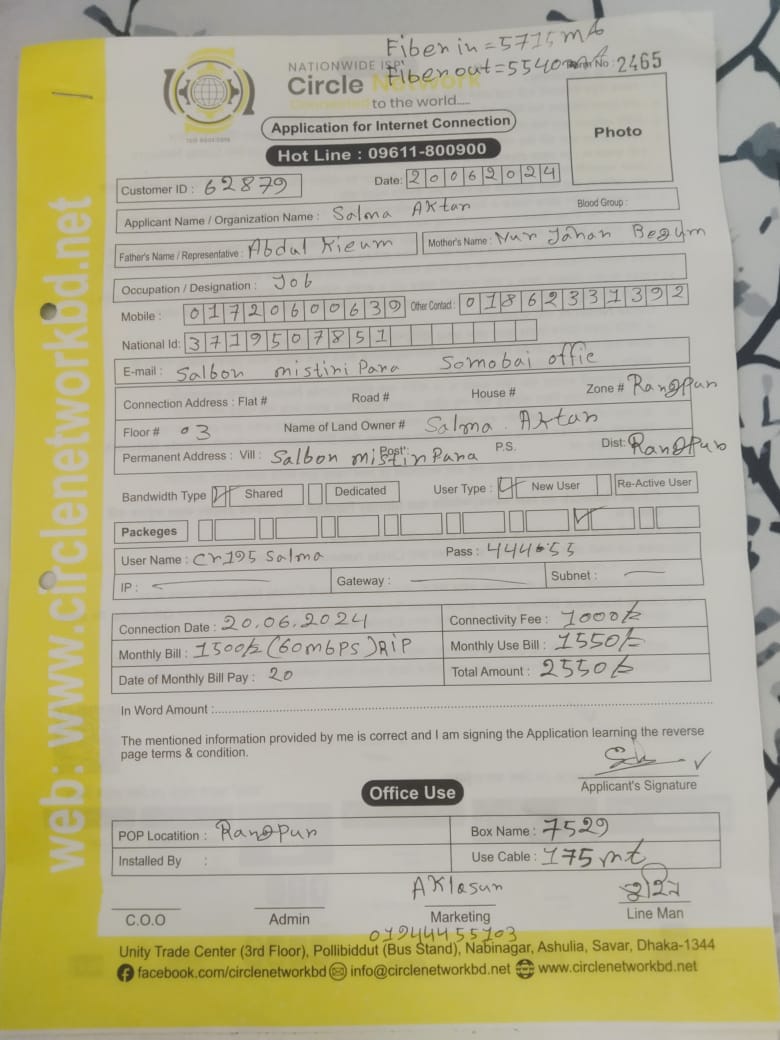 Fiber in = 5715 mA
NATIONWIDE ISP
Fiber out = 5540 mA No : 2465
Circle Network
Connected to the world.....
Application for Internet Connection
Photo
Hot Line : 09611-800900
Customer ID : 62879
Date: 20062024
Applicant Name / Organization Name : Salma AKtar
Blood Group :
Father's Name / Representative : Abdul Kieum
Mother's Name : Nur Jahan Begum
Occupation / Designation : Job
Mobile : 01720600639 Other Contact : 01862331392
National Id: 3719507851
E-mail : Salbon mistiri Para Somobai offie
Connection Address : Flat # Road # House # Zone # Rangpur
Floor # 03 Name of Land Owner # Salma Aktar
Permanent Address : Vill : Salbon mistiri Para Post: P.S. Dist: Rangpur
Bandwidth Type Shared Dedicated User Type : New User Re-Active User
Packeges
User Name : cr195 Salma Pass : 444655
IP : Gateway : Subnet :
Connection Date : 20.06.2024 Connectivity Fee : 1000/-
Monthly Bill : 1500/- (60mbPS) RiP Monthly Use Bill : 1550/-
Date of Monthly Bill Pay : 20 Total Amount : 2550/-
In Word Amount :
The mentioned information provided by me is correct and I am signing the Application learning the reverse
page terms & condition.
Applicant's Signature
Office Use
POP Locatition : Rangpur Box Name : 7529
Installed By : Use Cable : 175 mt
AKlasur
C.O.O Admin Marketing Line Man
01944455103
Unity Trade Center (3rd Floor), Pollibiddut (Bus Stand), Nabinagar, Ashulia, Savar, Dhaka-1344
facebook.com/circlenetworkbd info@circlenetworkbd.net www.circlenetworkbd.net
web: www.circlenetworkbd.net